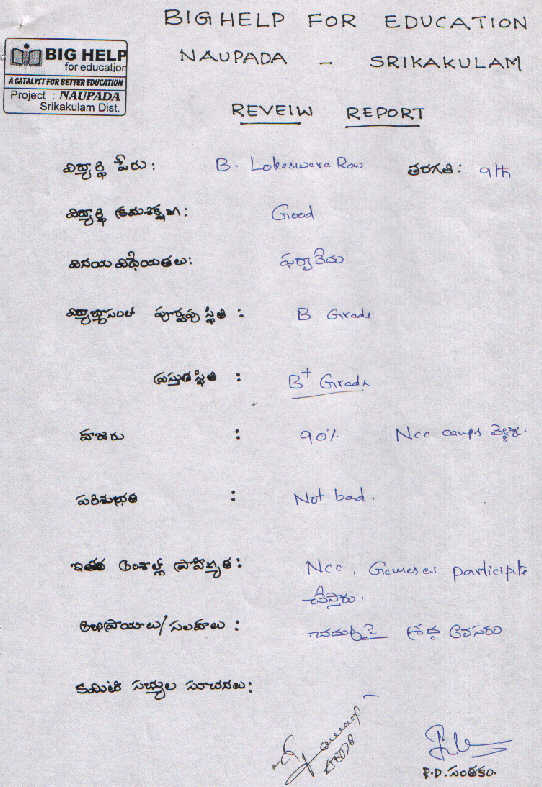 BIG HELP FOR EDUCATION
NAUPADA - SRIKAKULAM
BIG HELP
for education
A CATALYST FOR BETTER EDUCATION
Project : NAUPADA
Srikakulam Dist.
REVEIW REPORT
విద్యార్థి పేరు : B. Lokeswara Rao తరగతి : 9th
విద్యార్థి క్రమశిక్షణ : Good
వినయ విధేయతలు :
విద్యాభ్యాసంలో పూర్వపు స్థితి : B Grade
ప్రస్తుత స్థితి : B+ Grade
హాజరు : 90% Ncc camps
పరిశుభ్రత : Not bad.
ఇతర అంశాల్లో ప్రావీణ్యత : Ncc, Games participate
చేస్తారు.
అభిప్రాయాలు/సలహాలు :
కమిటి సభ్యుల సూచనలు :
F.D. సంతకం